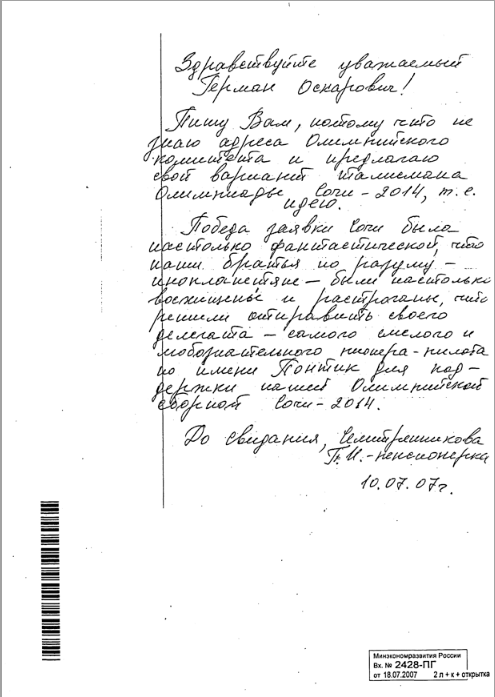 Здравствуйте уважаемый
Герман Оскарович!
Пишу Вам, потому что не
знаю адреса Олимпийского
комитета и предлагаю
свой вариант талисмана
Олимпиады Сочи-2014, т.е.
идею.
Победа заявки Сочи была
настолько фантастической, что
наши братья по разуму -
инопланетяне - были настолько
восхищены и растроганы, что
решили отправить своего
делегата - самого смелого и
любознательного пионера-пилота
по имени Понтик для под-
держки нашей Олимпийской
сборной Сочи-2014.
До свидания,
П.И.-пенсионерка
10.07.07г.
Минэкономразвития России
Вх. № 2428-ПГ
от 18.07.2007 2 л + к + открытка